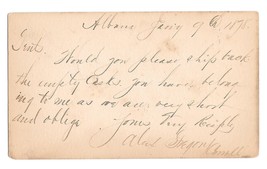 Albany Jany 9th 187
Gent.
Would you please ship back
the empty Casks you have belong
ing to me as we are very short
and oblige Yours Very Resptly